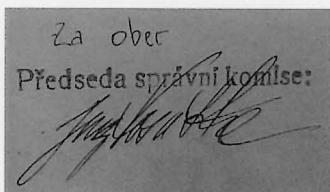 Za ober
Předseda správní komise: